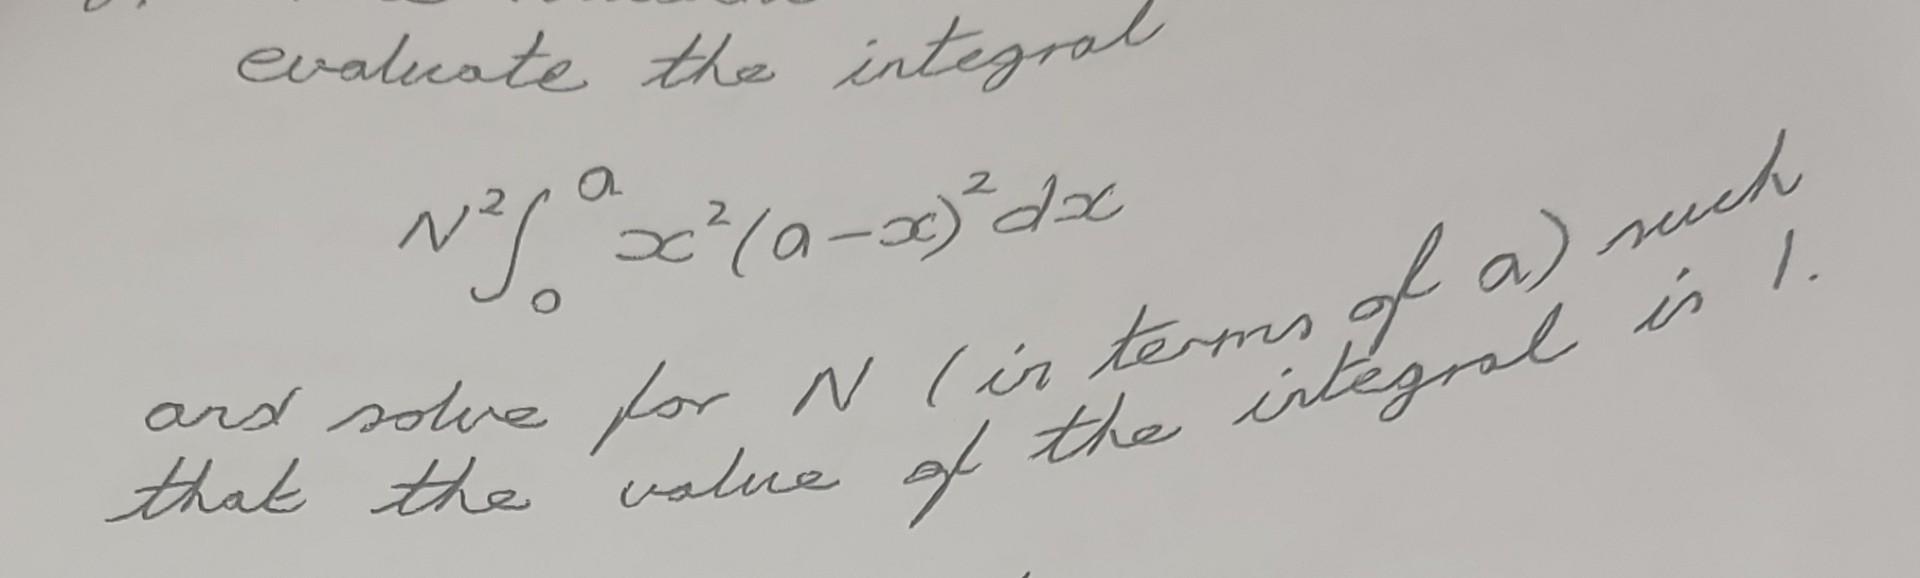 evaluate the integral
N²∫₀ᵃ x²(a-x)² dx
and solve for N (in terms of a) such
that the value of the integral is 1.